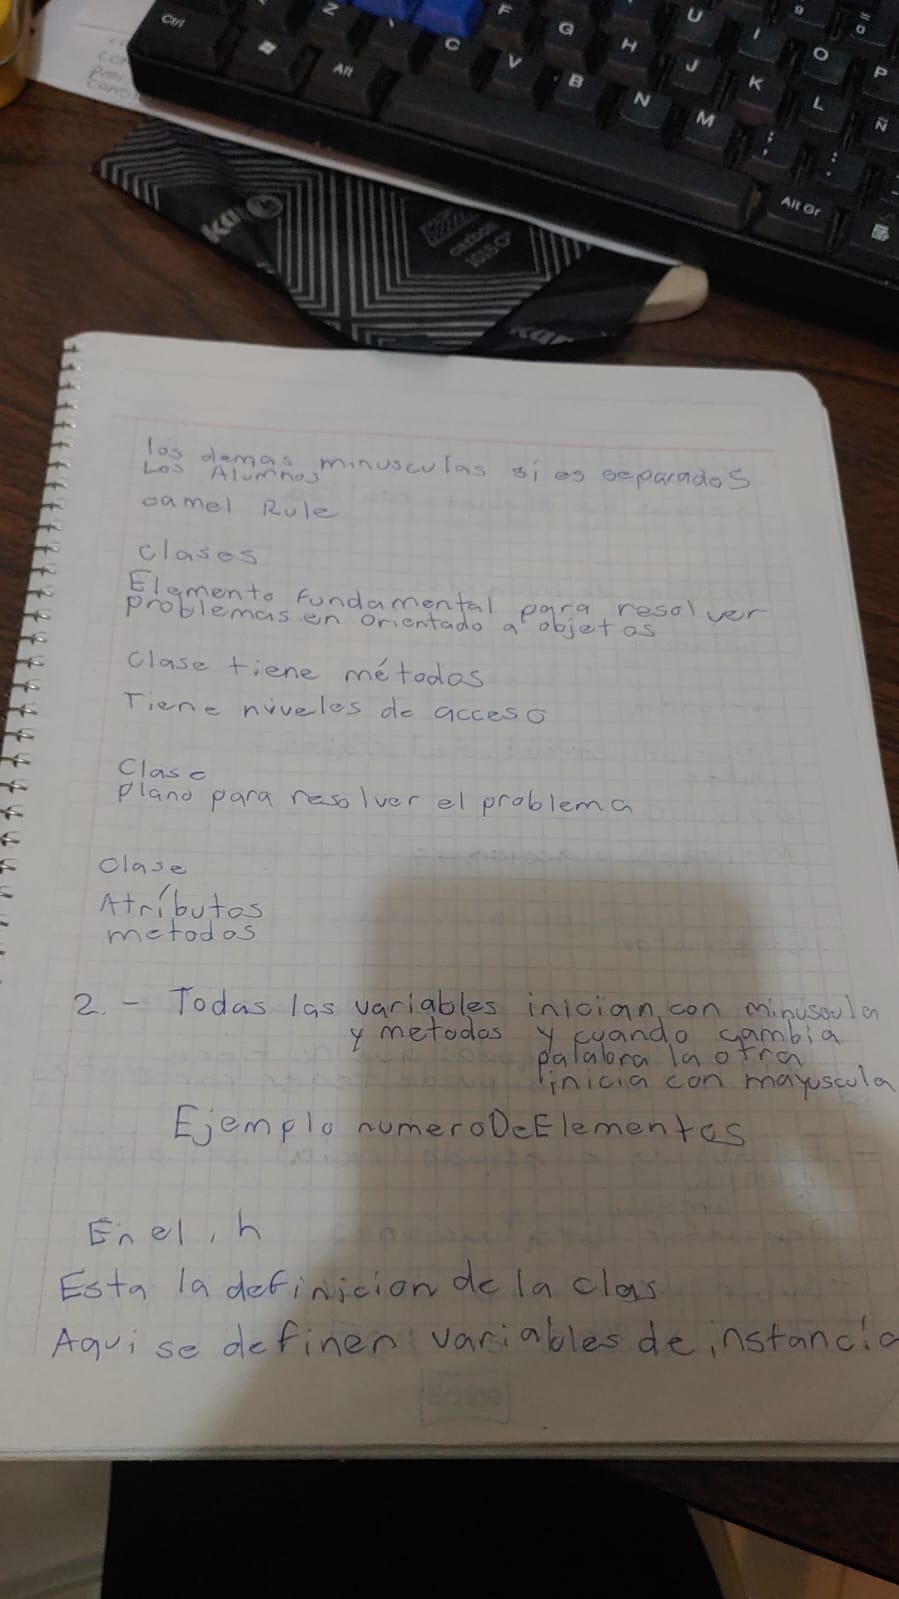 Ctrl
Z
Alt
C
V
F
B
G
N
H
M
U
J
I
K
O
L
P
Ñ
Alt Gr
carbon
los demas minusculas si es separados
Los Alumnos
camel Rule
clases
Elemento Fundamental para resolver
problemas en orientado a objetos
Clase tiene métodos
Tiene niveles de acceso
Clase
plano para resolver el problema
Clase
Atributos
metodos
2.- Todas las variables inician con minuscula
y metodos y cuando cambia
palabra la otra
inicia con mayuscula
Ejemplo numeroDeElementos
En el .h
Esta la definicion de la clas
Aqui se definen variables de instancia
Scribe